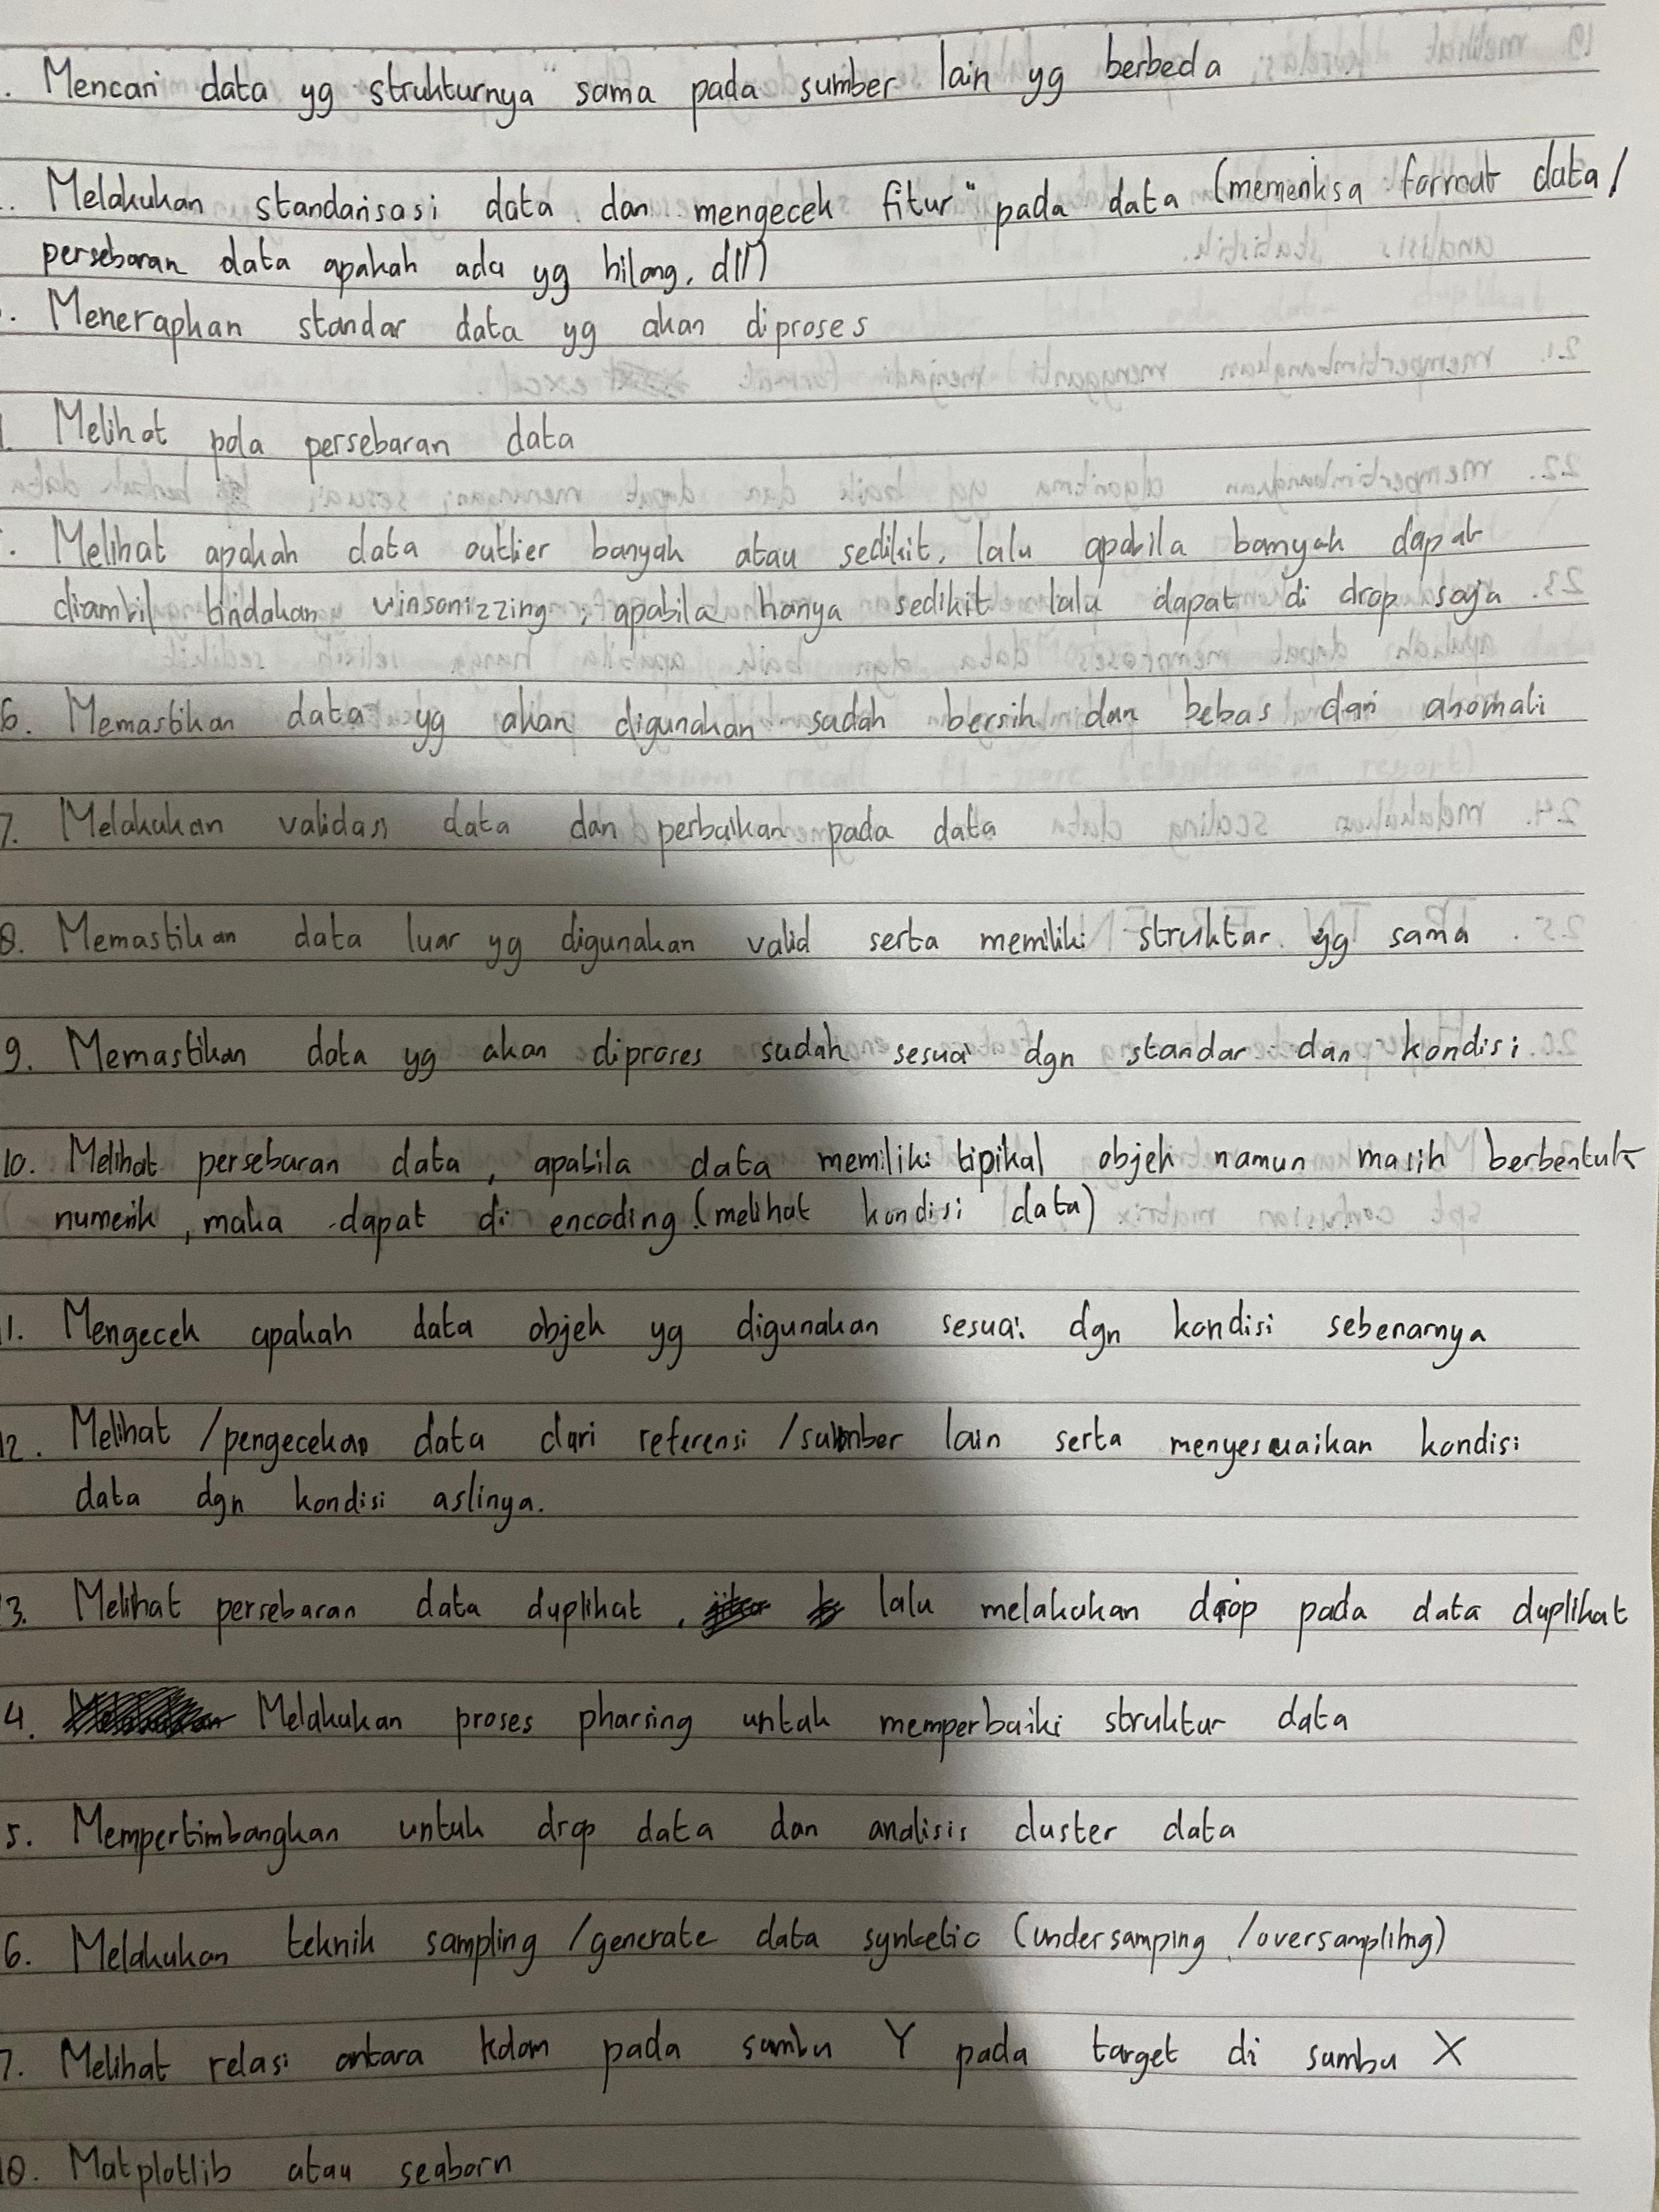 . Mencari data yg strukturnya" sama pada sumber lain yg berbeda
. Melakukan standarisasi data dan mengecek fitur" pada data (memeriksa format data /
persebaran data apakah ada yg hilang, dll)
. Menerapkan standar data yg akan diproses
. Melihat pola persebaran data
. Melihat apakah data outlier banyak atau sedikit, lalu apabila banyak dapat
diambil tindakan winsonizzing, apabila hanya sedikit lalu dapat di drop saja
6. Memastikan data yg akan digunakan sudah bersih dan bebas dari anomali
7. Melakukan validasi data dan perbaikan pada data
8. Memastikan data luar yg digunakan valid serta memiliki struktur yg sama
9. Memastikan data yg akan diproses sudah sesuai dgn standar dan kondisi
10. Melihat persebaran data, apabila data memiliki tipikal objek namun masih berbentuk
numerik, maka dapat di encoding (melihat kondisi data)
1. Mengecek apakah data objek yg digunakan sesuai dgn kondisi sebenarnya
12. Melihat /pengecekan data dari referensi /sumber lain serta menyesuaikan kondisi
data dgn kondisi aslinya.
3. Melihat persebaran data duplikat, lalu melakukan drop pada data duplikat
4. Melakukan proses pharsing untuk memperbaiki struktur data
5. Mempertimbangkan untuk drop data dan analisis cluster data
6. Melakukan teknik sampling /generate data syntetic (undersamping /oversampling)
7. Melihat relasi antara kolom pada sumbu Y pada target di sumbu X
18. Matplotlib atau seaborn